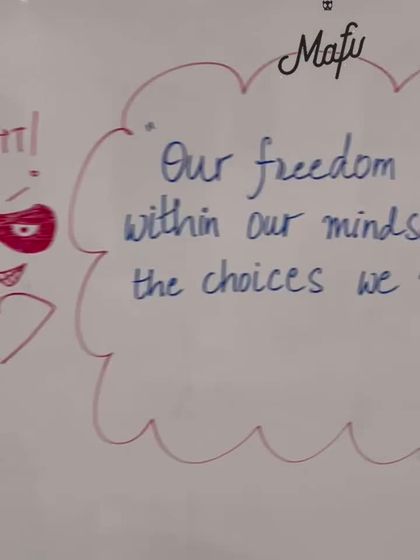 Mafu
"Our freedom
within our minds
the choices we